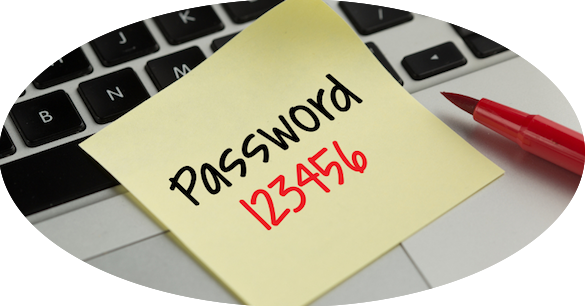 J K
B N M
Password
123456